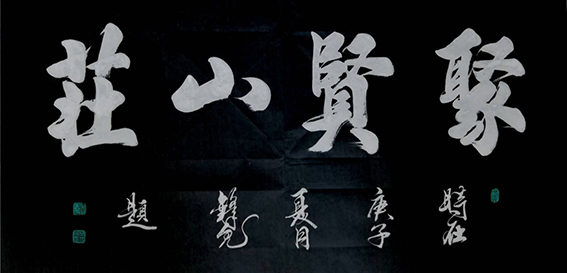 聚賢山莊
時在庚子夏月題